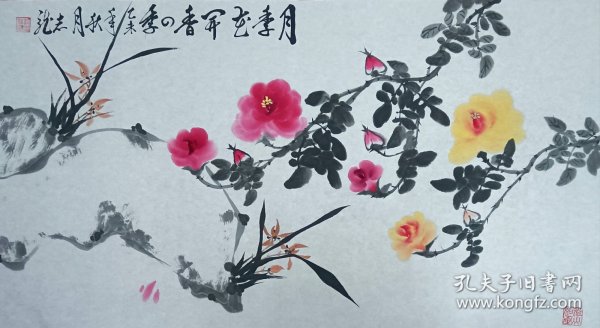 月季花開香四季乙未年秋月志龍
孔夫子旧书网
www.kongfz.com